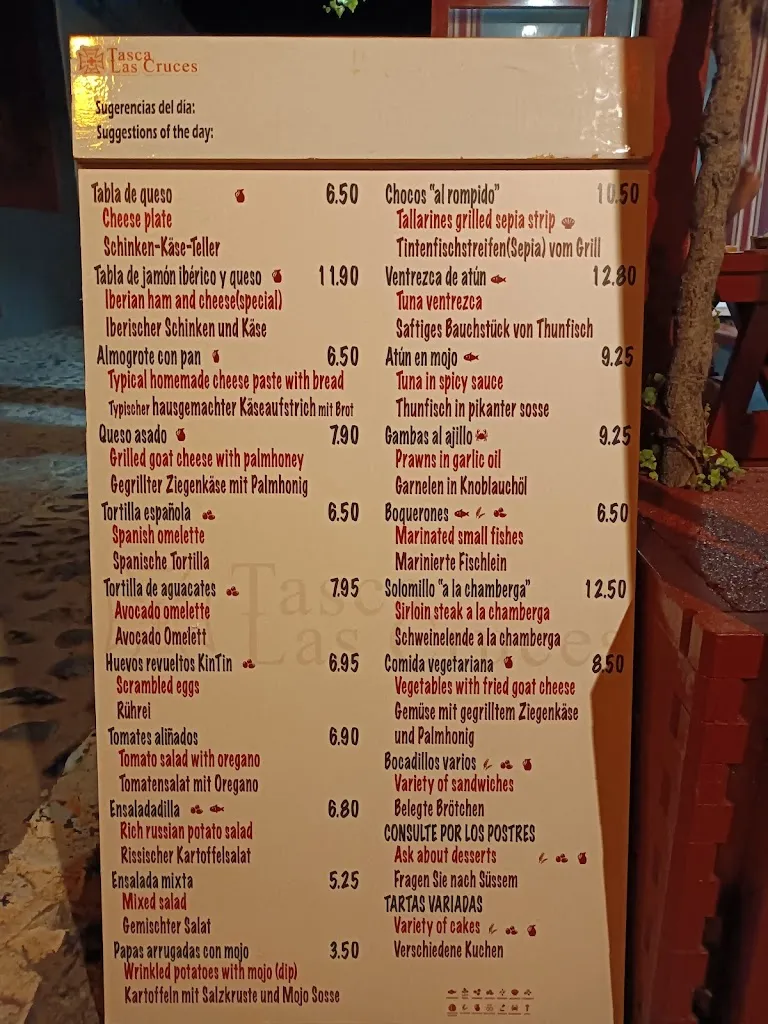 Tasca
Las Cruces
Sugerencias del dia:
Suggestions of the day:
Tabla de queso 6.50
Cheese plate
Schinken-Käse-Teller
Tabla de jamón ibérico y queso 11.90
Iberian ham and cheese(special)
Iberischer Schinken und Käse
Almogrote con pan 6.50
Typical homemade cheese paste with bread
Typischer hausgemachter Käseaufstrich mit Brot
Queso asado 7.90
Grilled goat cheese with palmhoney
Gegrillter Ziegenkäse mit Palmhonig
Tortilla española 6.50
Spanish omelette
Spanische Tortilla
Tortilla de aguacates 7.95
Avocado omelette
Avocado Omelett
Huevos revueltos KinTin 6.95
Scrambled eggs
Rührei
Tomates aliñados 6.90
Tomato salad with oregano
Tomatensalat mit Oregano
Ensaladadilla 6.80
Rich russian potato salad
Rissischer Kartoffelsalat
Ensalada mixta 5.25
Mixed salad
Gemischter Salat
Papas arrugadas con mojo 3.50
Wrinkled potatoes with mojo (dip)
Kartoffeln mit Salzkruste und Mojo Sosse
Chocos "al rompido" 10.50
Tallarines grilled sepia strip
Tintenfischstreifen(Sepia) vom Grill
Ventrezca de atún 12.80
Tuna ventrezca
Saftiges Bauchstück von Thunfisch
Atún en mojo 9.25
Tuna in spicy sauce
Thunfisch in pikanter sosse
Gambas al ajillo 9.25
Prawns in garlic oil
Garnelen in Knoblauchöl
Boquerones 6.50
Marinated small fishes
Marinierte Fischlein
Solomillo "a la chamberga" 12.50
Sirloin steak a la chamberga
Schweinelende a la chamberga
Comida vegetariana 8.50
Vegetables with fried goat cheese
Gemüse mit gegrilltem Ziegenkäse
und Palmhonig
Bocadillos varios
Variety of sandwiches
Belegte Brötchen
CONSULTE POR LOS POSTRES
Ask about desserts
Fragen Sie nach Süssem
TARTAS VARIADAS
Variety of cakes
Verschiedene Kuchen
Tasca
Las Cruces